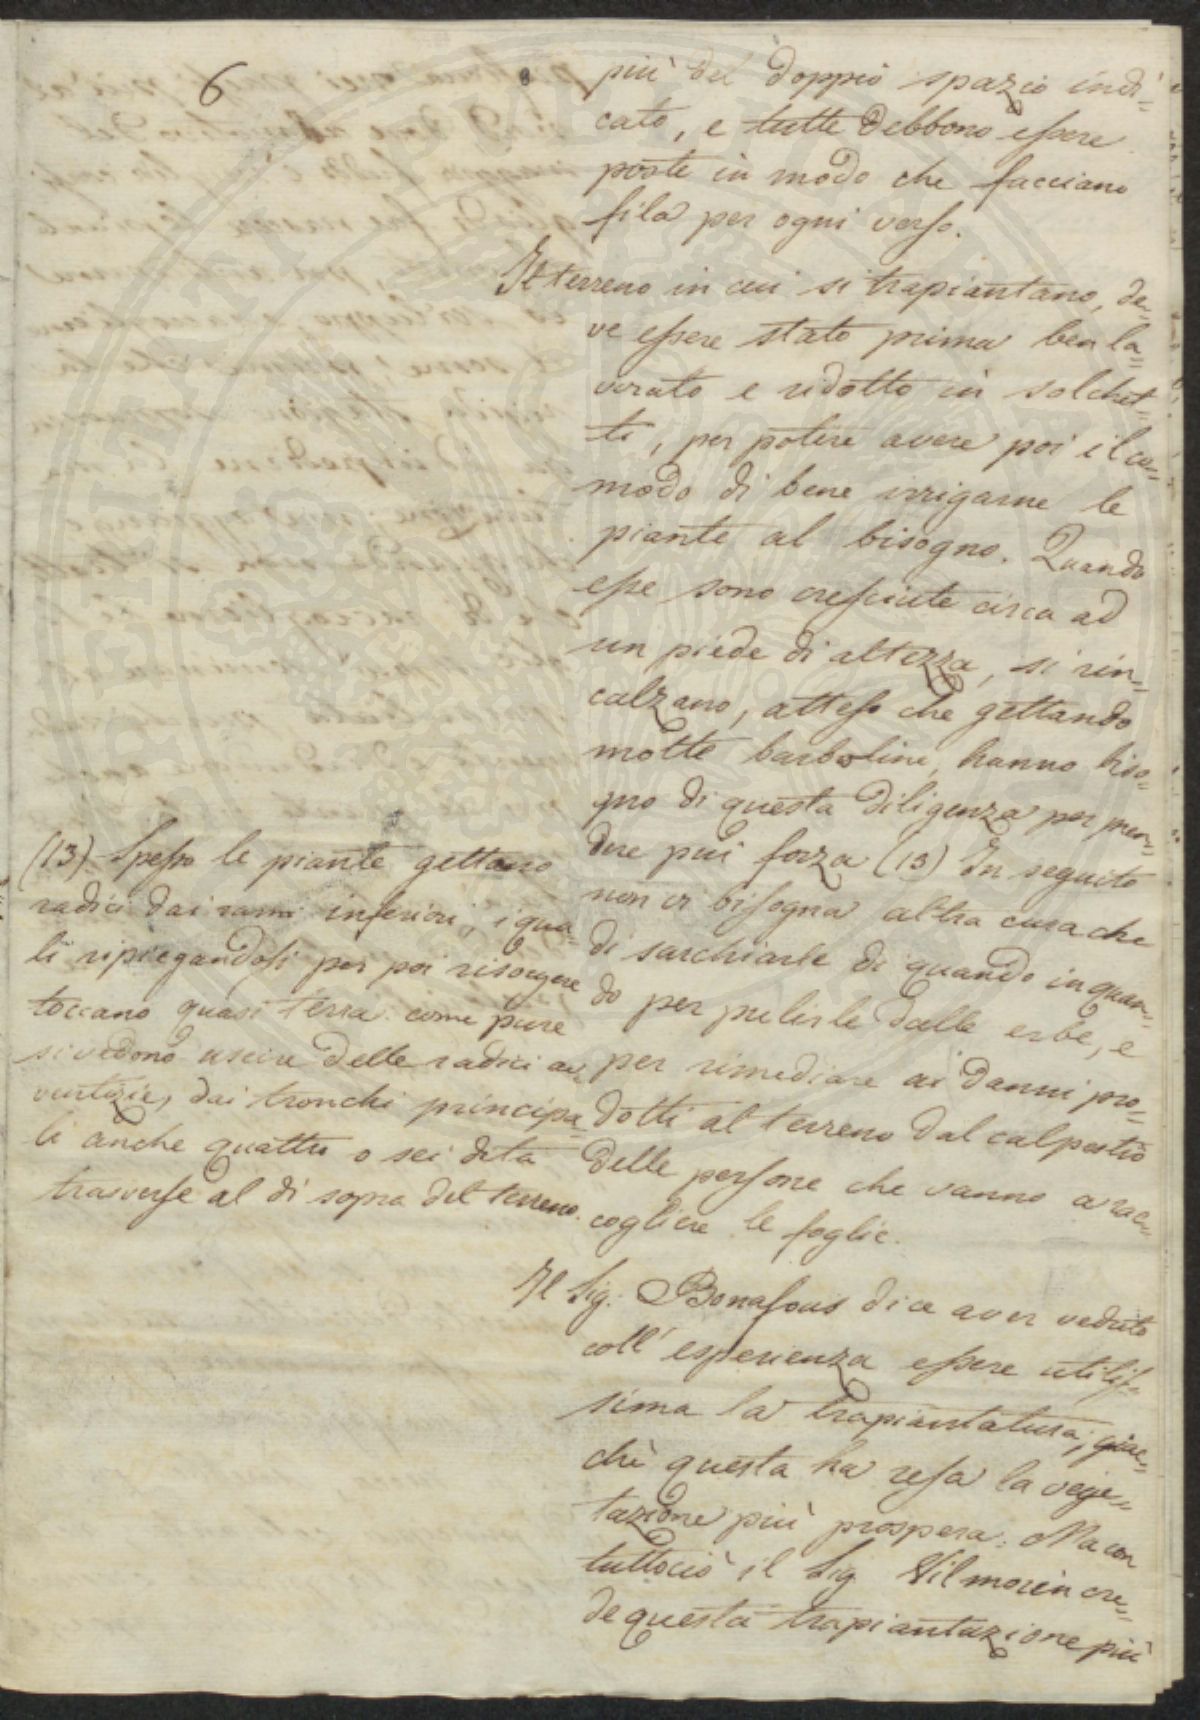 6
più del doppio spazio indi=
cato, e tutte debbono essere
poste in modo che facciano
fila per ogni verso.
Il terreno in cui si trapiantano, de=
ve essere stato prima ben la=
vorato e ridotto in solchet=
ti, per potere avere poi il co=
modo di bene irrigarne le
piante al bisogno. Quando
esse sono cresciute circa ad
un piede di altezza, si rin=
calzano, atteso che gettando
molte barboline, hanno biso=
gno di questa diligenza per pren=
dere più forza (13) In seguito
non vi bisogna altra cura che
di sarchiarle di quando in quan=
do per pulirle dalle erbe, e
per rimediare ai danni pro=
dotti al terreno dal calpestio
delle persone che vanno a rac=
cogliere le foglie.
Il Sig. Bonafous dice aver veduto
coll' esperienza essere utilis=
sima la trapiantatura, giac=
chè questa ha resa la vege=
tazione più prospera: Ma con
tuttociò il Sig. Vilmorin cre=
de questa trapiantazione più
(13) Spesso le piante gettano
radici dai rami inferiori, i qua=
li ripiegandosi per poi risorgere
toccano quasi terra: come pure
si vedono uscire delle radici av=
ventizie, dai tronchi principa=
li anche quattro o sei dita
trasverse al di sopra del terreno.